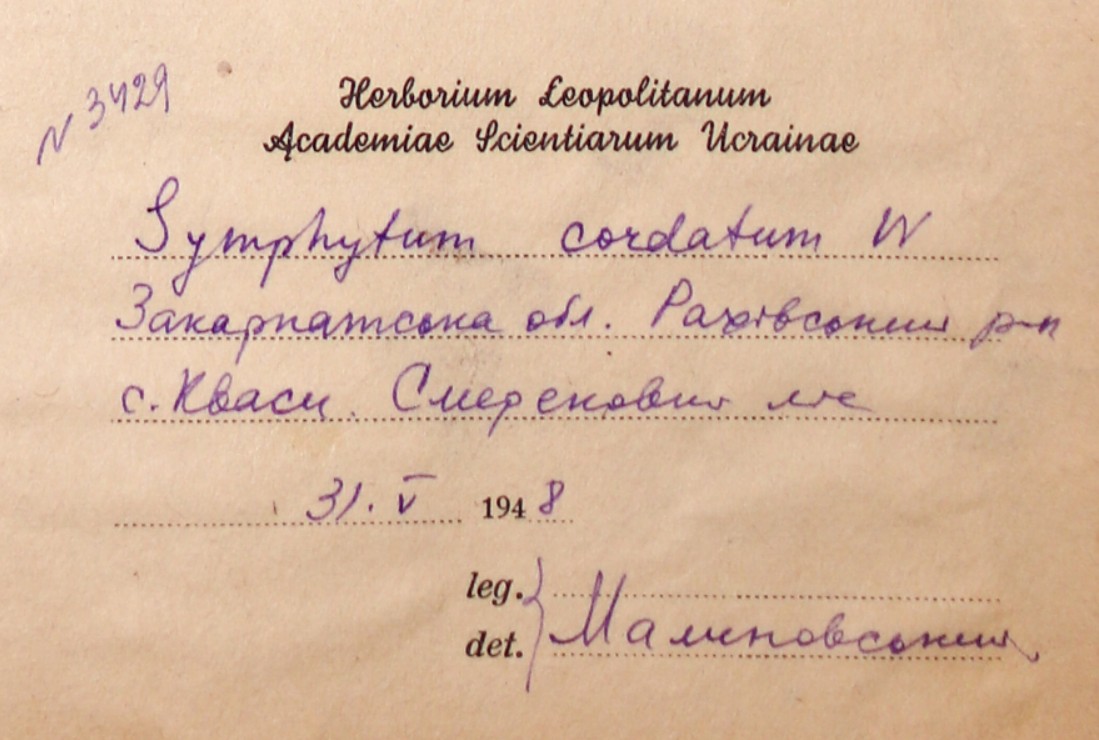 N 3429
Herborium Leopolitanum
Academiae Scientiarum Ucrainae
Symphytum cordatum W
Закарпатська обл. Рахівський р-н
с. Кваси. Смерековий ліс
31. V 1948
leg.
det. Малиновський